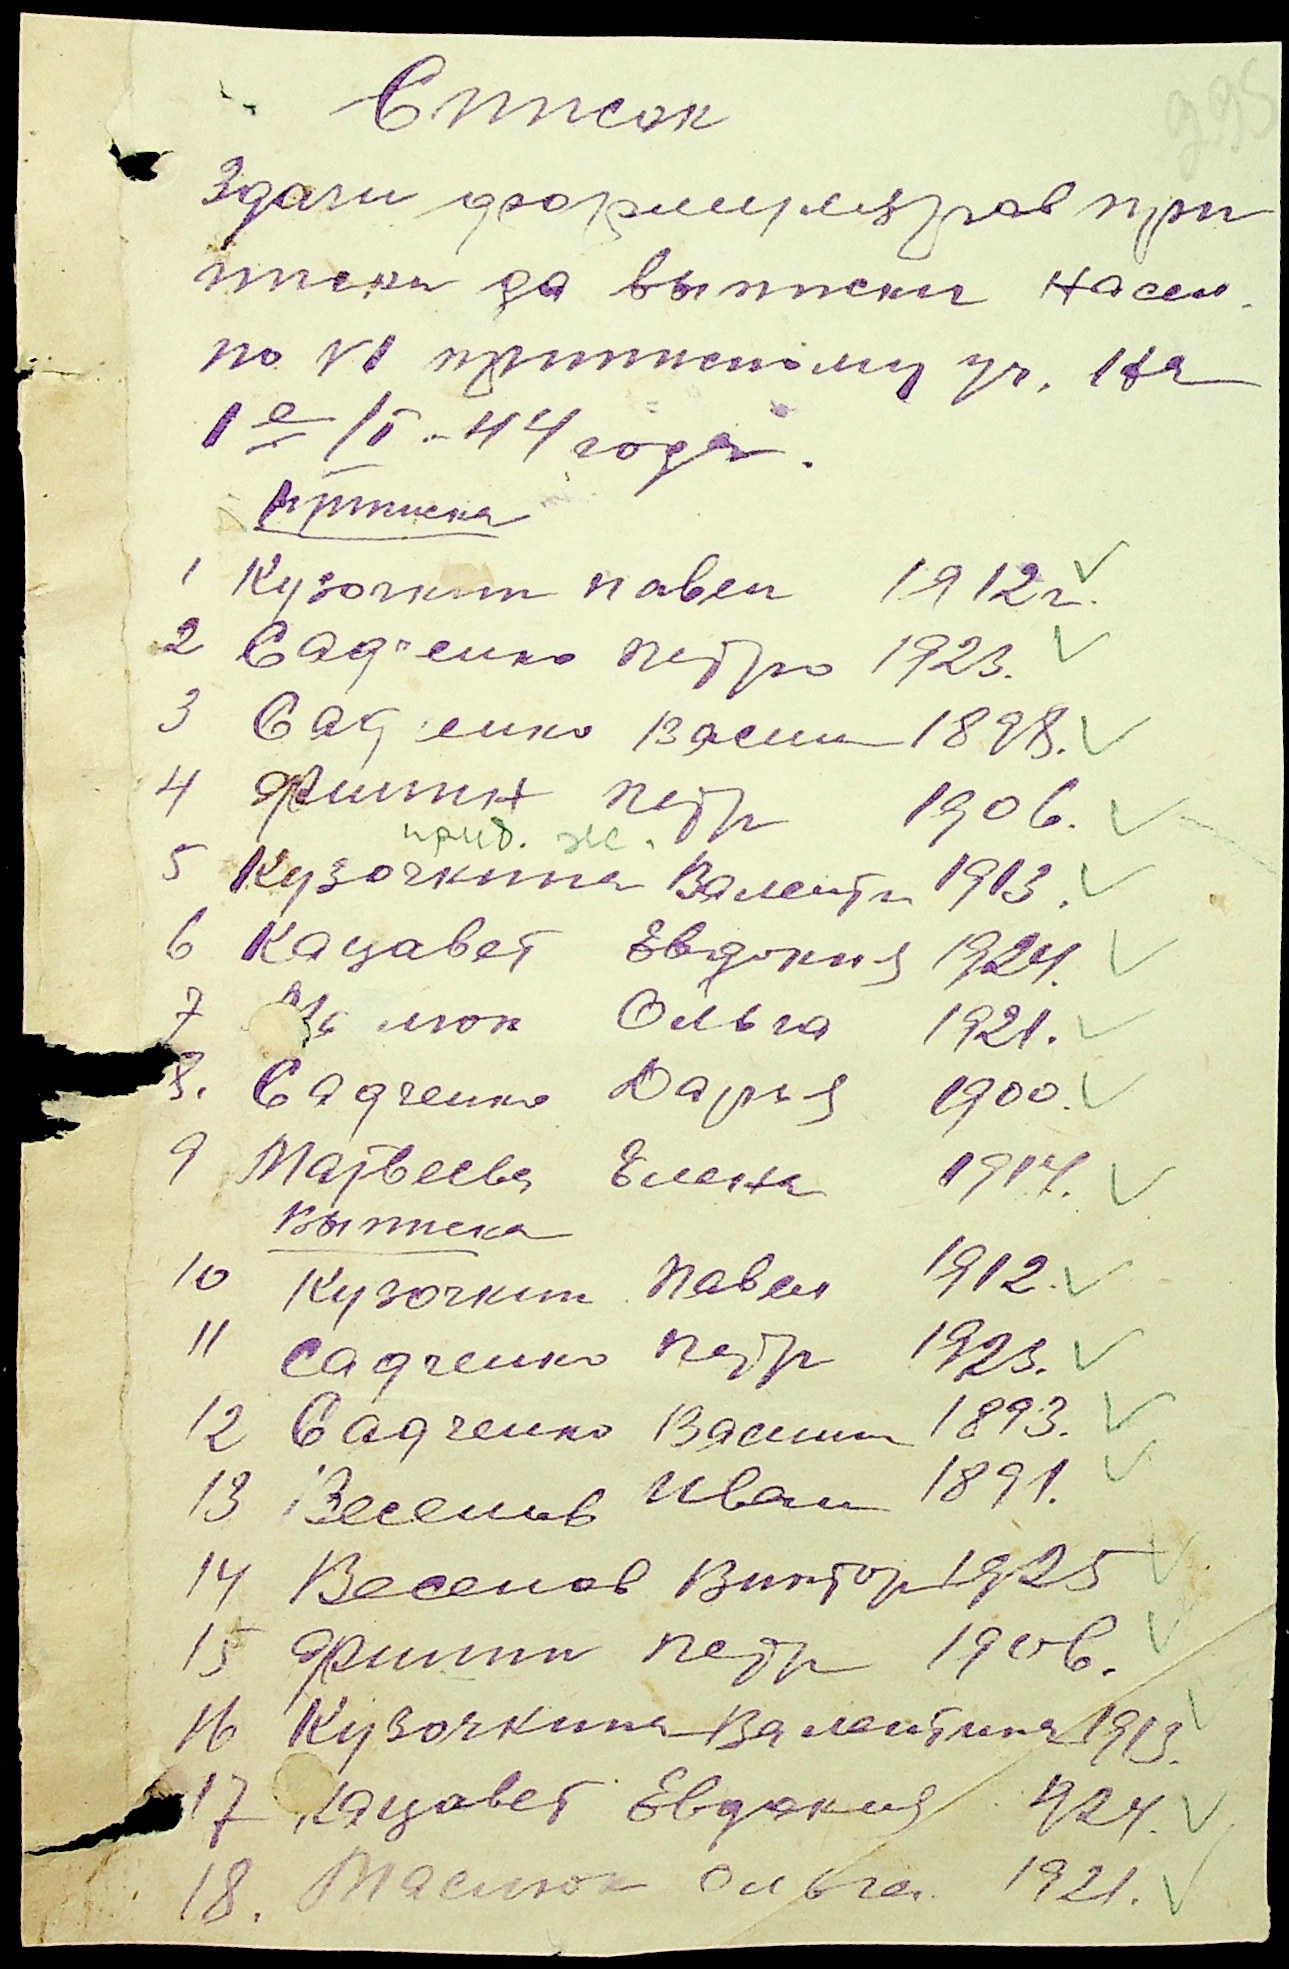 995
Список
Здачи формуляров при
писки да выписки насел.
по VI приписному уч. На
1е/II-44 года.
приписка
1 Кузочкин Павел 1912 г.
2 Садченко Петро 1923.
3 Садченко Васил 1898.
4 Филин Петр 1906.
приб. ж.
5 Кузочкина Валенти 1913.
6 Кацавет Евдокия 1924.
7 люк Ольга 1921.
8. Садченко Дарья 1900.
9 Матвеева Елена 1914.
Выписка
10 Кузочкин Павел 1912.
11 Садченко Петр 1923.
12 Садченко Васили 1893.
13 Веселов Иван 1891.
14 Веселов Виктор 1925
15 Филин Петр 1906.
16 Кузочкина Валентина 1913.
17 Кацавет Евдокия 1924.
18. Маслюк Ольга 1921.